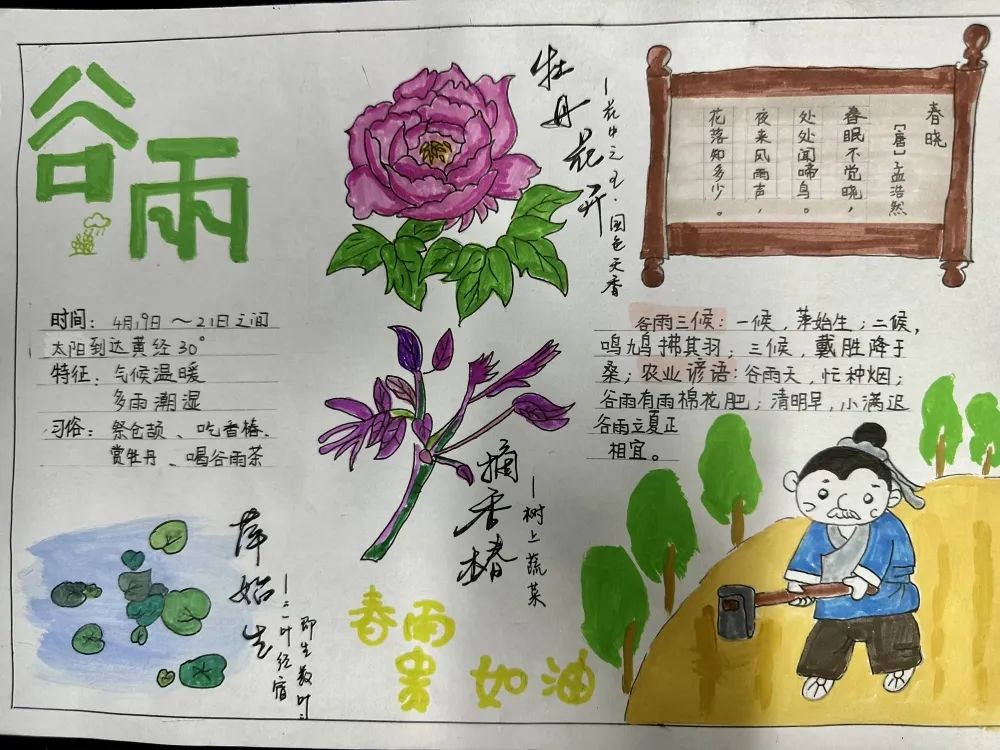 谷雨
时间：4月19日～21日之间
太阳到达黄经30°
特征：气候温暖
多雨潮湿
习俗：祭仓颉、吃香椿、
赏牡丹、喝谷雨茶
牡丹花开
—花中之王·国色天香
春晓
[唐]孟浩然
春眠不觉晓，
处处闻啼鸟。
夜来风雨声，
花落知多少。
谷雨三候：一候，萍始生；二候，
鸣鸠拂其羽；三候，戴胜降于
桑；农业谚语：谷雨天，忙种烟；
谷雨有雨棉花肥；清明早，小满迟
谷雨立夏正
相宜。
摘香椿
—树上蔬菜
萍始生
—一叶经宿
即生数叶
春雨
贵如油